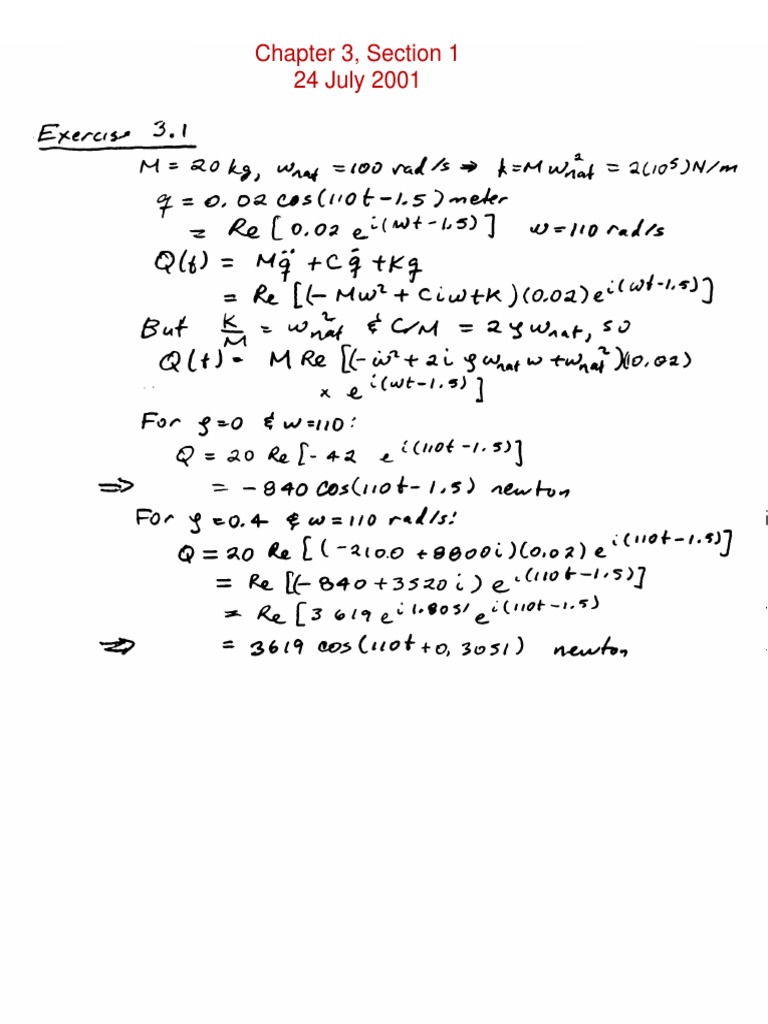 Chapter 3, Section 1
24 July 2001
Exercise 3.1
M = 20 kg, ω_nat = 100 rad/s ⇒ k = M ω²_nat = 2(10⁵) N/m
q = 0.02 cos(110t − 1.5) meter
= Re [0.02 e^{i(ωt − 1.5)}] ω = 110 rad/s
Q(t) = Mq̈ + Cq̇ + Kq
= Re [(−Mω² + Ciω + K)(0.02) e^{i(ωt − 1.5)}]
But K/M = ω²_nat & C/M = 2ζω_nat, so
Q(t) = M Re [(−ω² + 2i ζω_nat ω + ω_nat²)(0.02)
× e^{i(ωt − 1.5)}]
For ζ = 0 & ω = 110:
Q = 20 Re [−42 e^{i(110t − 1.5)}]
⇒ = −840 cos(110t − 1.5) newton
For ζ = 0.4 & ω = 110 rad/s:
Q = 20 Re [(−210.0 + 8800i)(0.02) e^{i(110t − 1.5)}]
= Re [(−840 + 3520i) e^{i(110t − 1.5)}]
= Re [3619 e^{i1.8051} e^{i(110t − 1.5)}
⇒ = 3619 cos(110t + 0.3051) newton